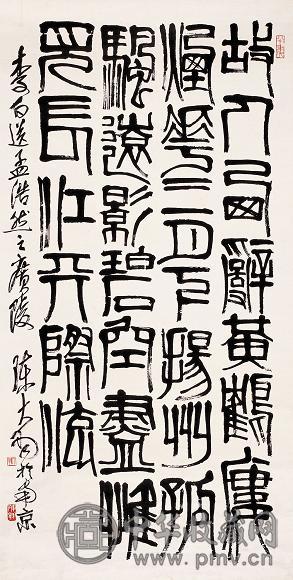 故人西辭黃鶴廔
煙華三月下揚州孤
颿遠影碧空盡惟
見長江天際流
李白送孟浩然之廣陵 陳大羽於南京
中华收藏网
www.pmv.cn